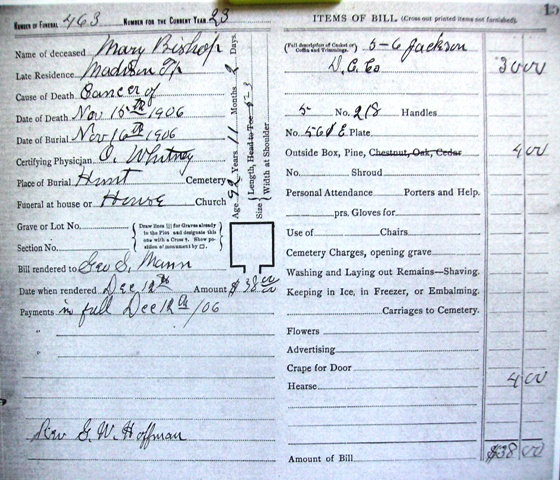 NUMBER OF FUNERAL 463 NUMBER FOR THE CURRENT YEAR 23
Name of deceased Mary Bishop
Late Residence Madison Tp
Cause of Death Cancer of
Date of Death Nov 15th 1906
Date of Burial Nov 16th 1906
Certifying Physician, O. Whitney
Place of Burial Hunt Cemetery
Funeral at house or House Church
Age 52 Years 11 Months 2 Days.
Size { Length, Head to Toe 5-3
Width at Shoulder
Grave or Lot No.
Section No.
{ Draw lines ||| for Graves already in the Plot and designate this one with a Cross †. Show position of monument by □. }
Bill rendered to Geo S. Mann
Date when rendered Dec 12th Amount $38.00
Payments in full Dec 12th /06
"
"
Rev G. W. Hoffman
ITEMS OF BILL (Cross out printed items not furnished).
(Full description of Casket or Coffin and Trimmings) 5-6 Jackson 30 00
D. C. Co
5 No. 218 Handles
No. 561 E Plate
Outside Box, Pine, Chestnut, Oak, Cedar 4 00
No. Shroud
Personal Attendance Porters and Help.
prs. Gloves for
Use of Chairs
Cemetery Charges, opening grave
Washing and Laying out Remains—Shaving.
Keeping in Ice, in Freezer, or Embalming.
Carriages to Cemetery.
Flowers
Advertising
Crape for Door
Hearse 4 00
Amount of Bill $38 00